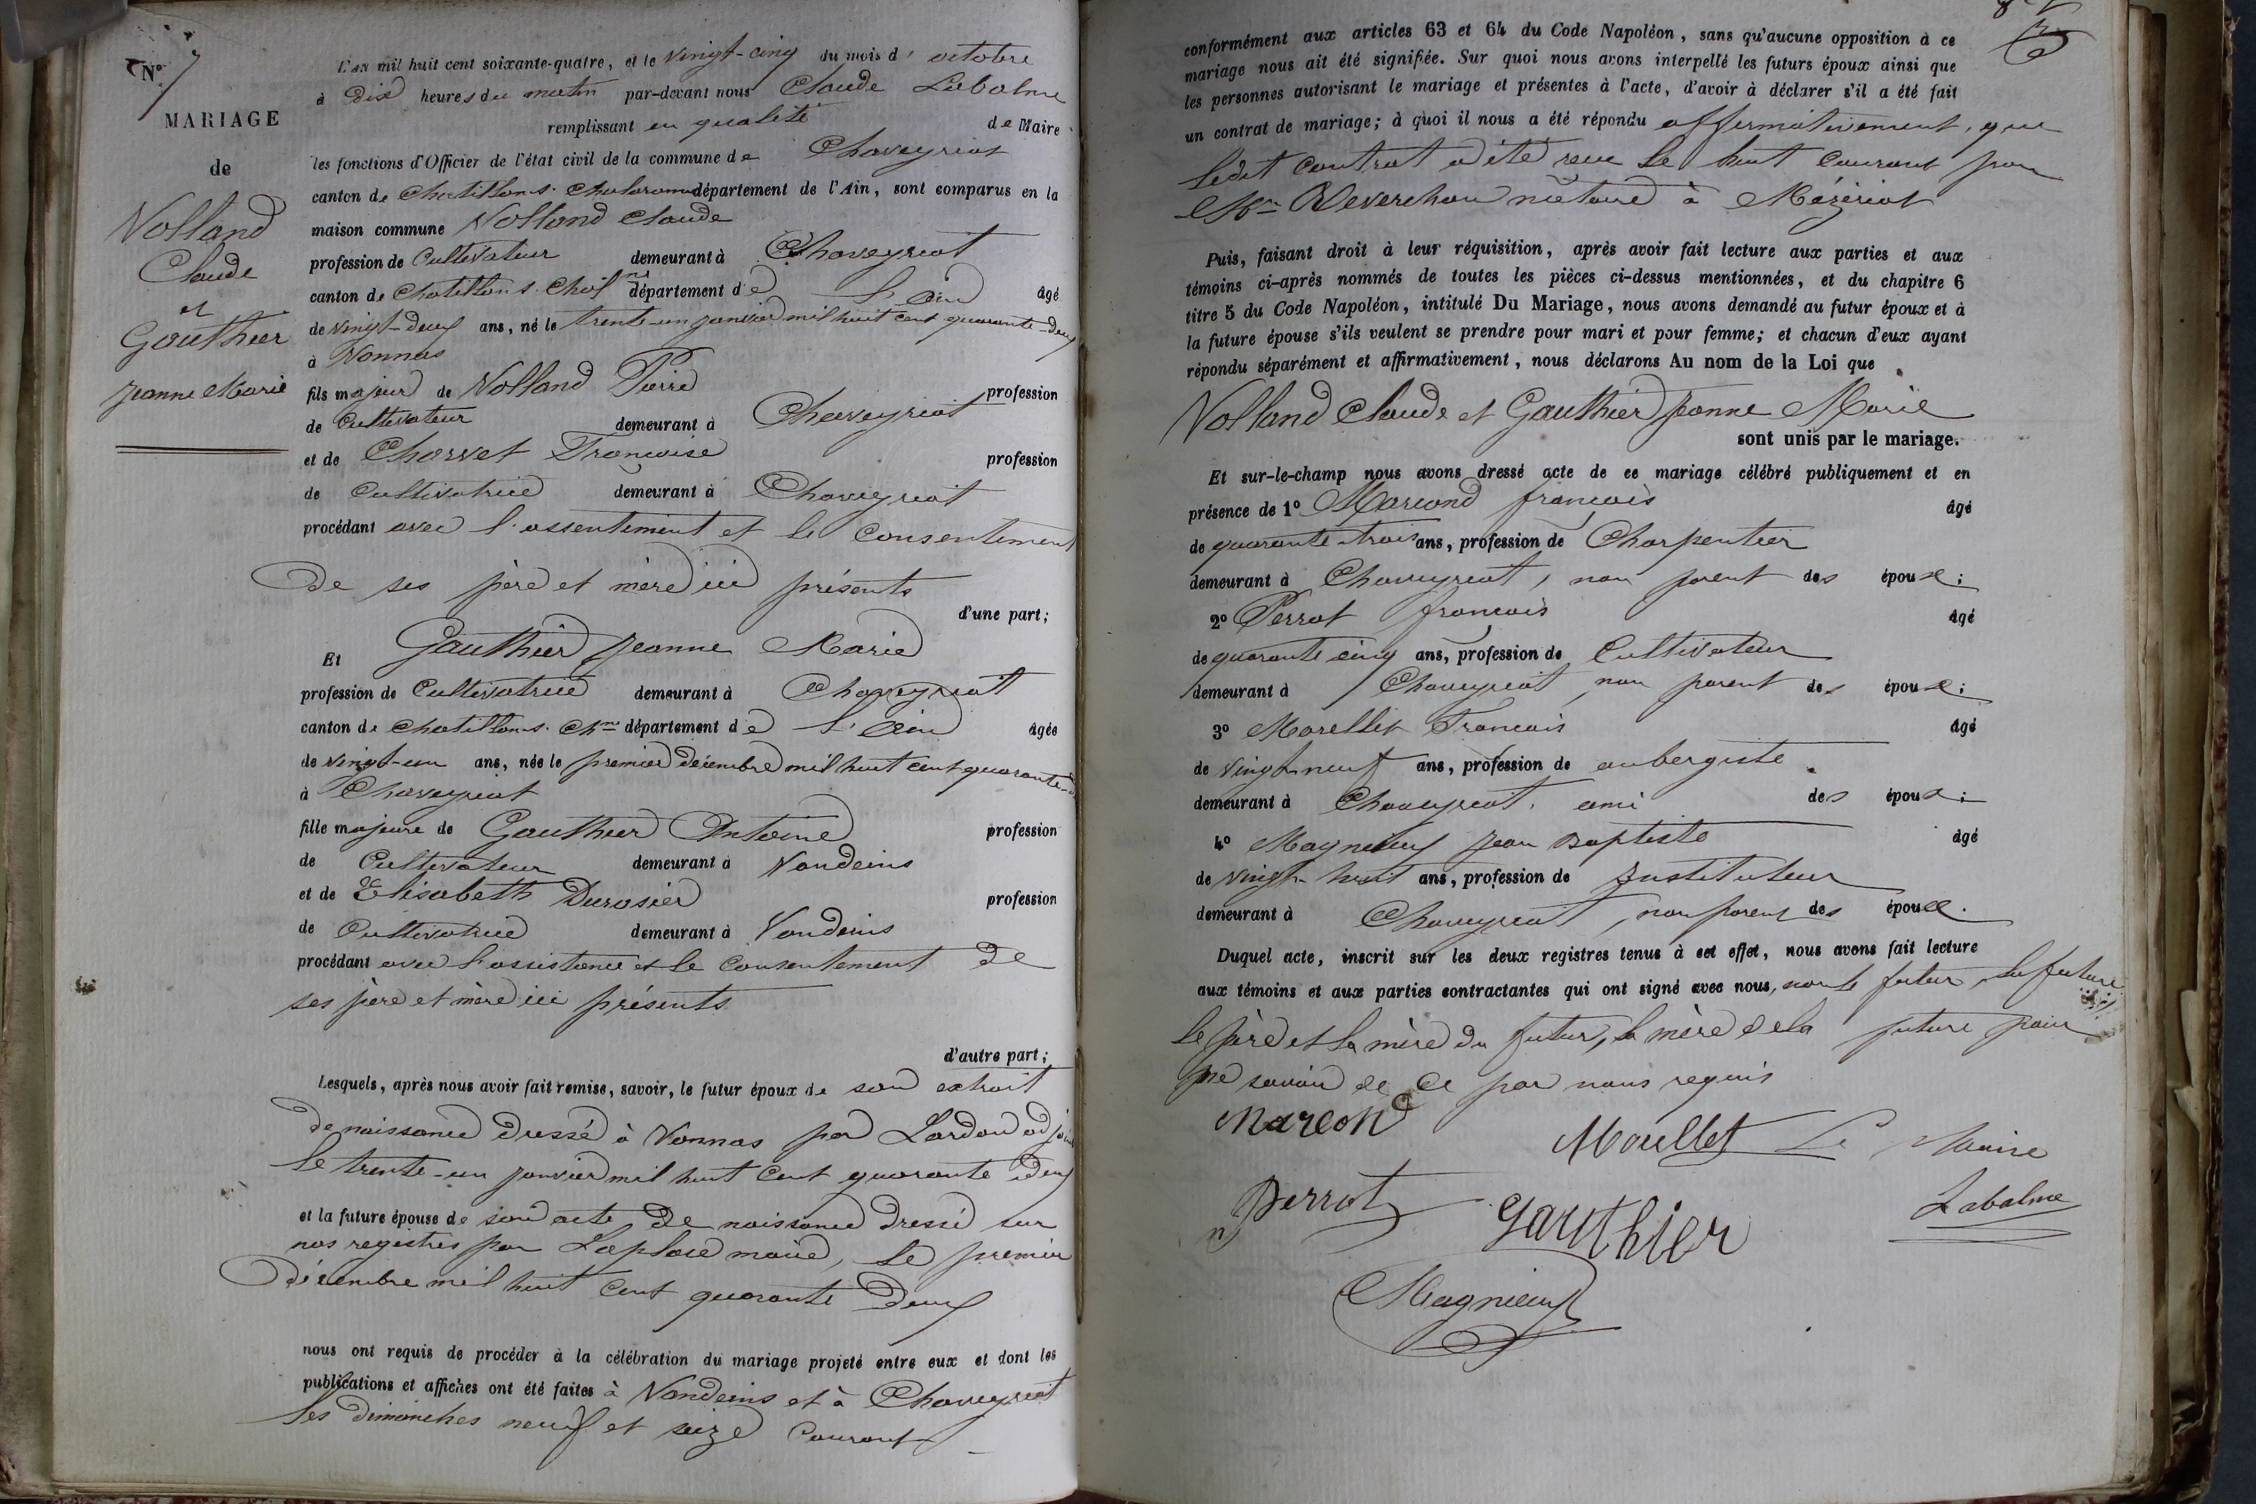 N.° 7
MARIAGE
de
Volland
Claude
et
Gauthier
Jeanne Marie
L'an mil huit cent soixante-quatre, et le vingt-cinq du mois d'octobre
à dix heures du matin par-devant nous Claude Labalme
remplissant en qualité de Maire
les fonctions d'Officier de l'état civil de la commune de Chaveyriat
canton de Chatillon s. Chalaronne département de l'Ain, sont comparus en la
maison commune Volland Claude
profession de Cultivateur demeurant à Chaveyriat
canton de Chatillon s. Chal ne département de l'Ain âgé
de vingt-deux ans, né le trente-un janvier mil huit cent quarante-deux
à Vonnas
fils majeur de Volland Pierre profession
de Cultivateur demeurant à Chaveyriat
et de Charvet Francoise profession
de Cultivatrice demeurant à Chaveyriat
procédant avec l'assentiment et le consentement
de ses père et mère ici présents
d'une part;
Et Gauthier Jeanne Marie
profession de Cultivatrice demeurant à Chaveyriat
canton de Chatillon s. Ch ne département de l'Ain âgée
de vingt-un ans, née le premier décembre mil huit cent quarante-
à Chaveyriat
fille majeure de Gauthier Antoine profession
de Cultivateur demeurant à Vandeins
et de Elisabeth Durosier profession
de Cultivatrice demeurant à Vandeins
procédant avec l'assistance et le consentement de
ses père et mère ici présents
d'autre part;
Lesquels, après nous avoir fait remise, savoir, le futur époux de son extrait
de naissance dressé à Vonnas par Lardon adjoint
le trente-un janvier mil huit cent quarante deux
et la future épouse de son acte de naissance dressé sur
nos registres par Laplace maire, le premier
décembre mil huit cent quarante deux
nous ont requis de procéder à la célébration du mariage projeté entre eux et dont les
publications et affiches ont été faites à Vandeins et à Chaveyriat
les dimanches neuf et seize courant
conformément aux articles 63 et 64 du Code Napoléon, sans qu'aucune opposition à ce
mariage nous ait été signifiée. Sur quoi nous avons interpellé les futurs époux ainsi que
les personnes autorisant le mariage et présentes à l'acte, d'avoir à déclarer s'il a été fait
un contrat de mariage; à quoi il nous a été répondu affirmativement, que
ledit contrat a été recu le huit courant par
notaire à Mézériat
Puis, faisant droit à leur réquisition, après avoir fait lecture aux parties et aux
témoins ci-après nommés de toutes les pièces ci-dessus mentionnées, et du chapitre 6
titre 5 du Code Napoléon, intitulé Du Mariage, nous avons demandé au futur époux et à
la future épouse s'ils veulent se prendre pour mari et pour femme; et chacun d'eux ayant
répondu séparément et affirmativement, nous déclarons Au nom de la Loi que
Volland Claude et Gauthier Jeanne Marie
sont unis par le mariage.
Et sur-le-champ nous avons dressé acte de ce mariage célébré publiquement et en
présence de 1° Marcond francois âgé
de quarante trois ans, profession de Charpentier
demeurant à Chaveyriat, non parent des époux;
2° Perrat francois âgé
de quarante cinq ans, profession de Cultivateur
demeurant à Chaveyriat, non parent des époux;
3° Morellet Francois âgé
de vingt neuf ans, profession de aubergiste
demeurant à Chaveyriat, ami des époux;
4° Magnieux Jean Baptiste âgé
de vingt huit ans, profession de Instituteur
demeurant à Chaveyriat, non parent des époux.
Duquel acte, inscrit sur les deux registres tenus à cet effet, nous avons fait lecture
aux témoins et aux parties contractantes qui ont signé avec nous, non le futur, la future
le père et la mère du futur, la mère de la future pour
ne savoir de ce par nous requis
Marcond
Morellet Le Maire
Perrat Gauthier Labalme
Magnieux